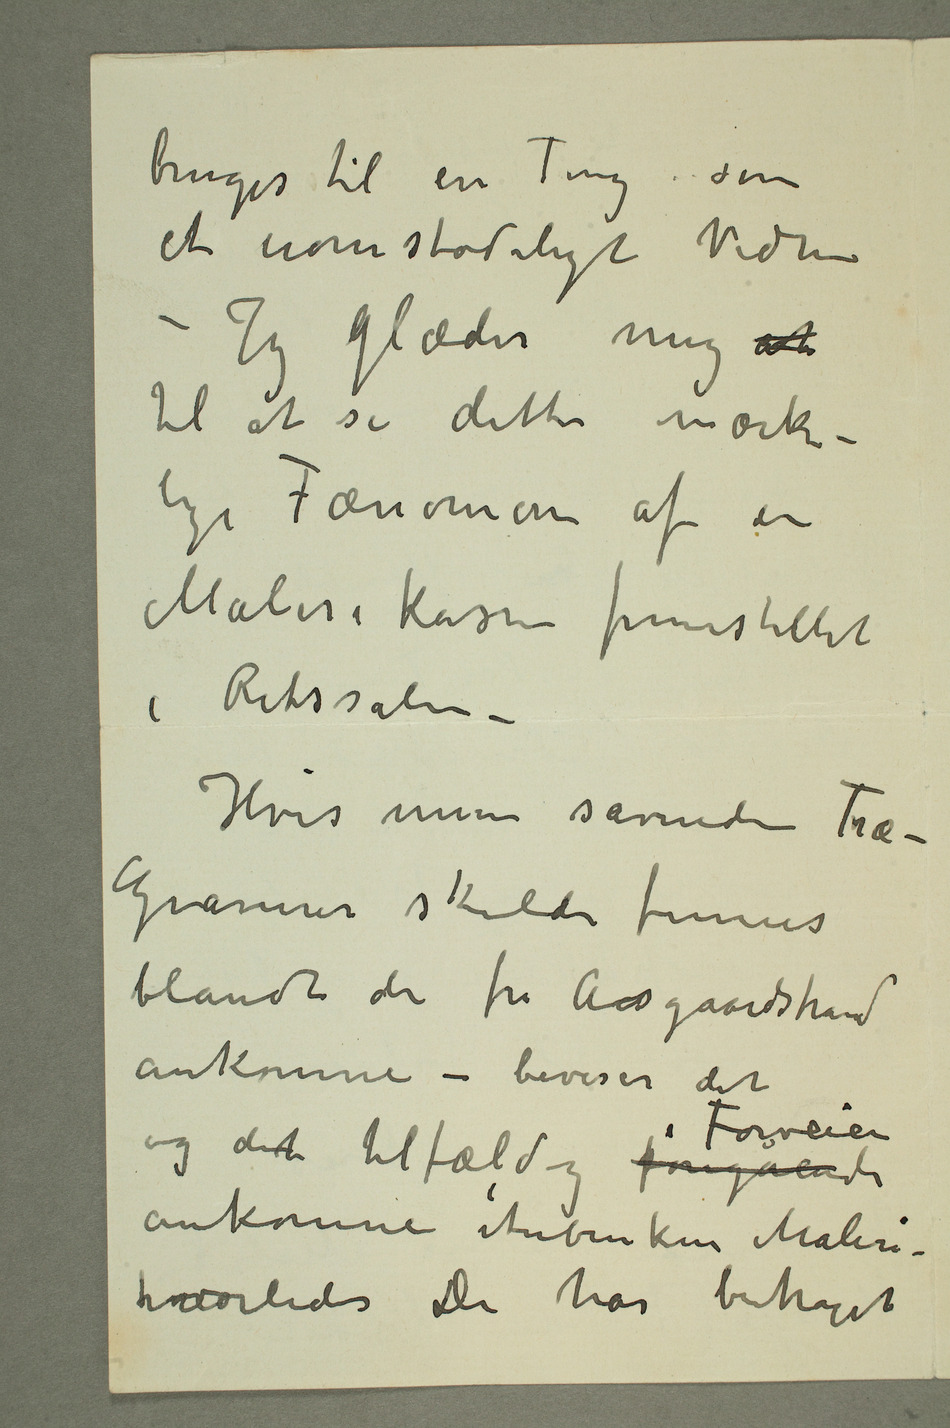 bruges til en Ting som
et uomstødeligt Vidne
– Jeg glæder mig at
til at se dette mærke-
lige Fænomen af en
Malerikasse fremstillet
i Retssalen –
Hvis mine savnede Træ-
Gravurer skulde finnes
blandt de fra Aasgaardstrand
ankomne – beviser det
i Forveien
og det tilfældig foregående
ankomne itubrukne Maleri-
hvorledes De har betraget